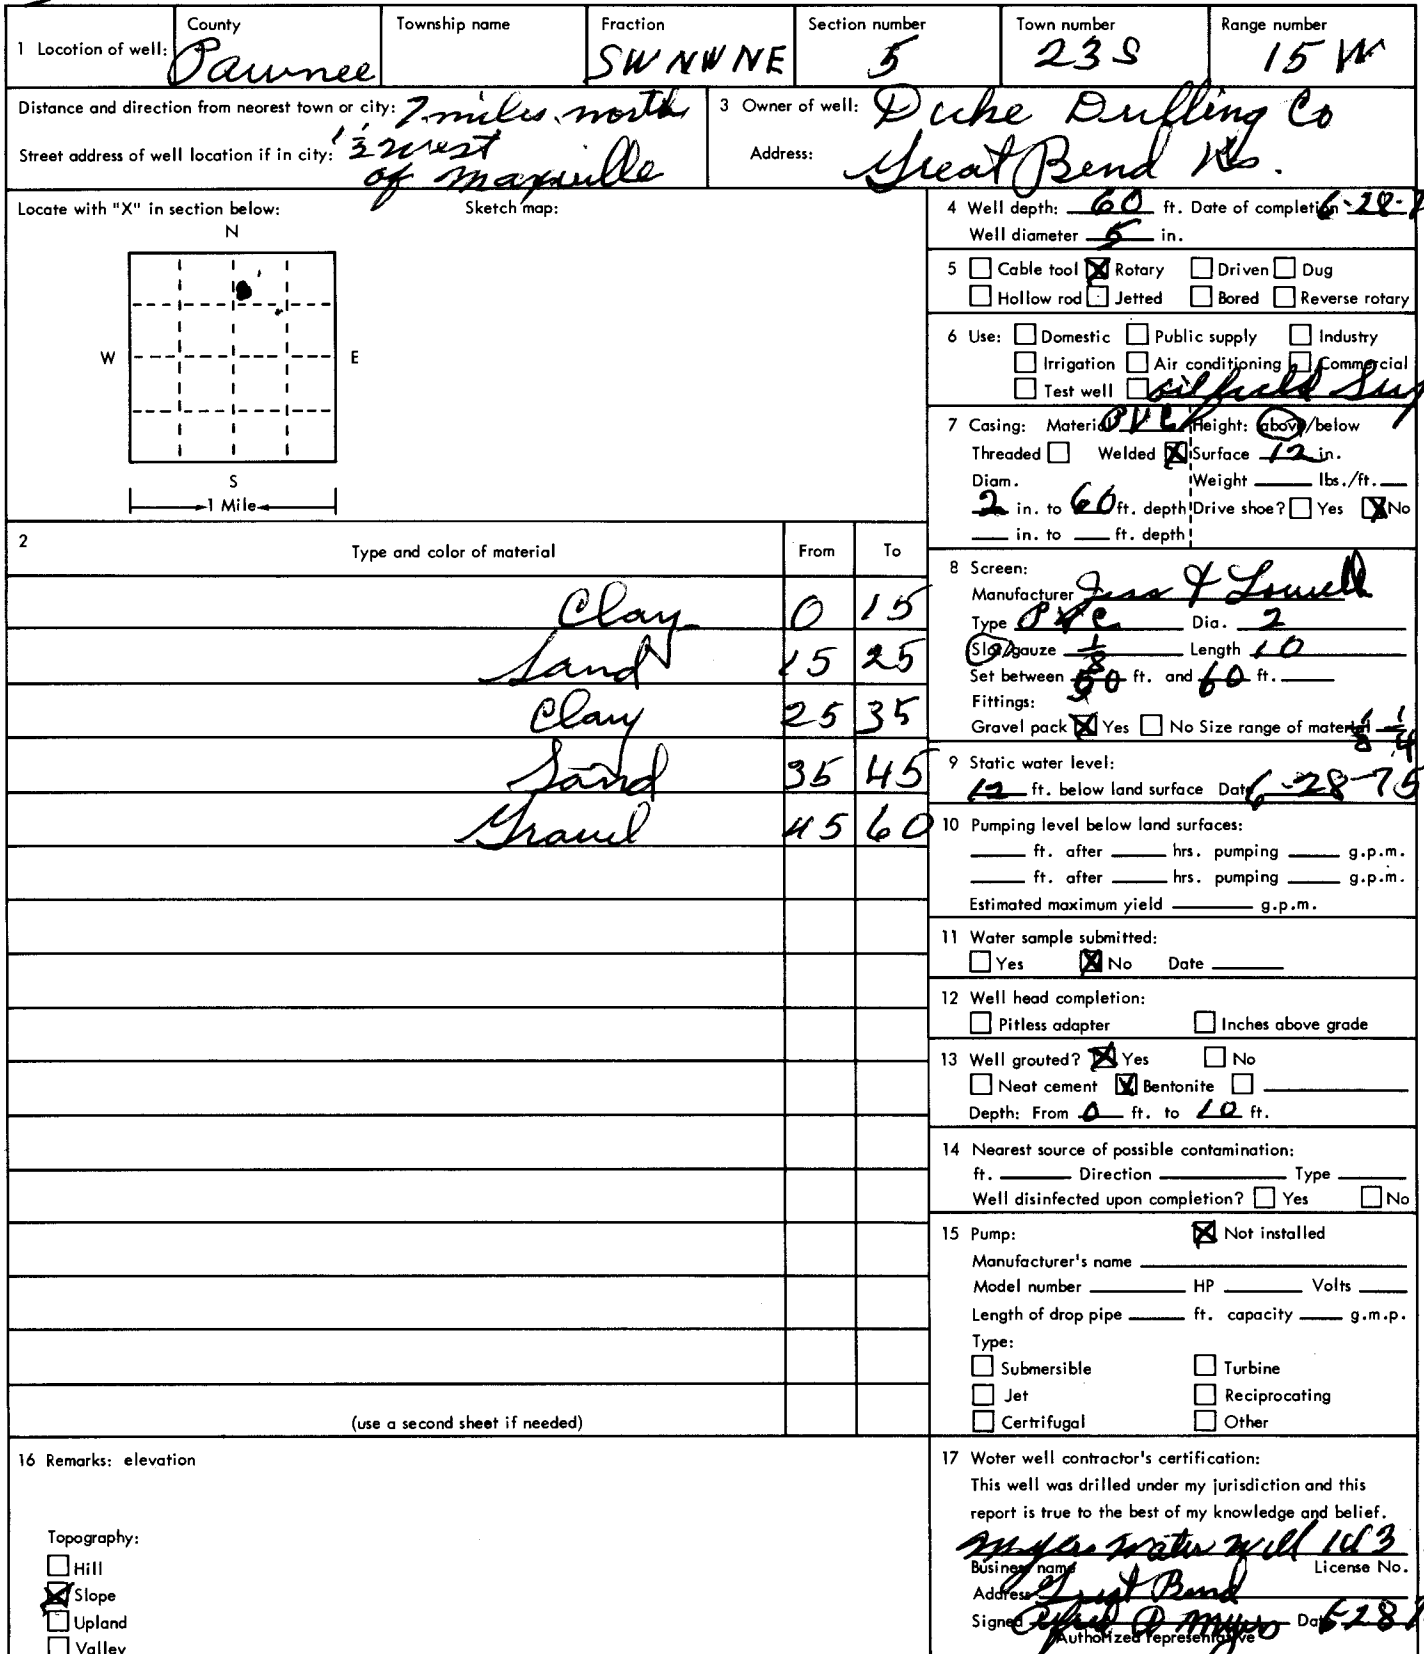 County Township name Fraction Section number Town number Range number
1 Location of well: Pawnee SW NW NE 5 23 S 15 W
Distance and direction from nearest town or city: 7 miles north
1/2 west
Street address of well location if in city:
of
3 Owner of well: Duke Drilling Co
Address: Great Bend Ks.
Locate with "X" in section below: Sketch map:
N
W E
S
1 Mile
4 Well depth: 60 ft. Date of completion 6-28-7
Well diameter 5 in.
5 Cable tool X Rotary Driven Dug
Hollow rod Jetted Bored Reverse rotary
6 Use: Domestic Public supply Industry
Irrigation Air conditioning Commercial
Test well oilfield Sup
7 Casing: Material PVC Height: above/below
Threaded Welded X Surface 12 in.
Diam. Weight lbs./ft.
2 in. to 60 ft. depth Drive shoe? Yes X No
in. to ft. depth
2 Type and color of material From To
Clay 0 15
Sand 15 25
Clay 25 35
Sand 35 45
Gravel 45 60
(use a second sheet if needed)
8 Screen:
Manufacturer Jess & Lowell
Type PVC Dia. 2
Slot/gauze 1/8 Length 10
Set between 50 ft. and 60 ft.
Fittings:
Gravel pack X Yes No Size range of material 1/8 1/4
9 Static water level:
12 ft. below land surface Date 6-28-75
10 Pumping level below land surfaces:
ft. after hrs. pumping g.p.m.
ft. after hrs. pumping g.p.m.
Estimated maximum yield g.p.m.
11 Water sample submitted:
Yes X No Date
12 Well head completion:
Pitless adapter Inches above grade
13 Well grouted? X Yes No
Neat cement X Bentonite
Depth: From 0 ft. to 10 ft.
14 Nearest source of possible contamination:
ft. Direction Type
Well disinfected upon completion? Yes No
15 Pump: X Not installed
Manufacturer's name
Model number HP Volts
Length of drop pipe ft. capacity g.m.p.
Type:
Submersible Turbine
Jet Reciprocating
Certrifugal Other
16 Remarks: elevation
Topography:
Hill
X Slope
Upland
Valley
17 Water well contractor's certification:
This well was drilled under my jurisdiction and this
report is true to the best of my knowledge and belief.
Myers Water Well 143
Business name License No.
Address Great Bend
Signed Myers Date 6-28-7
Authorized representative